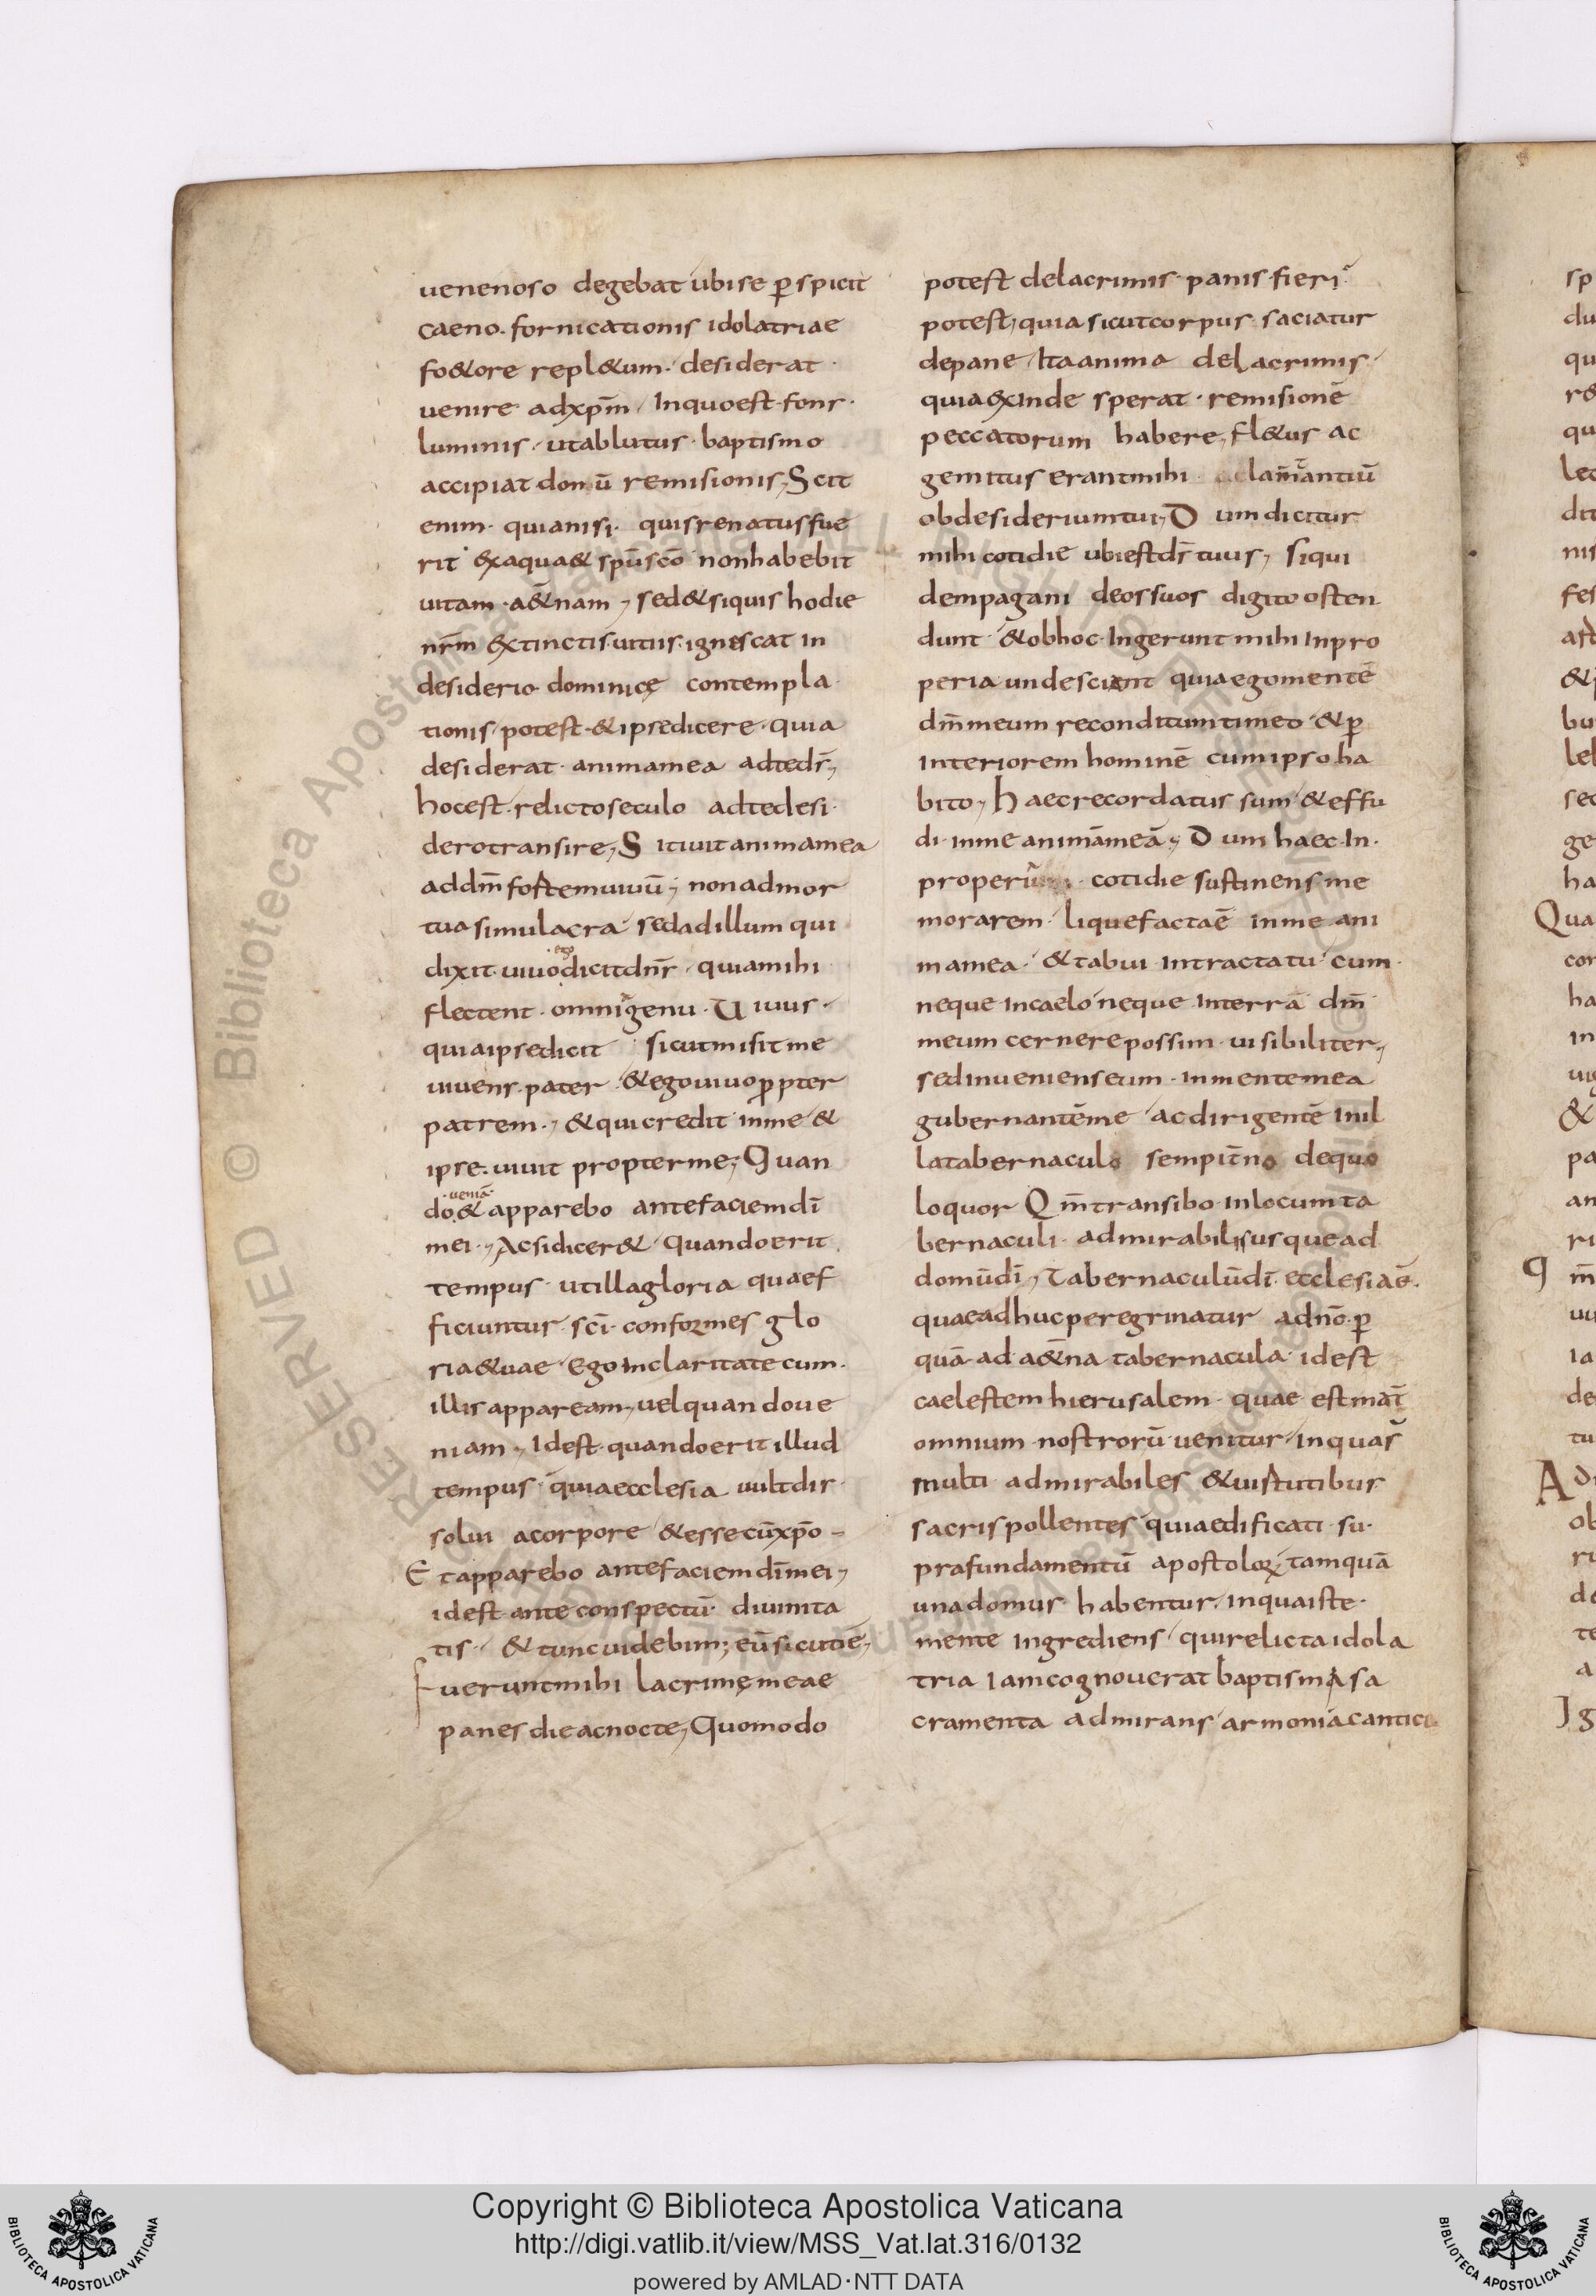 uenenoso degebat ubi se p̄spicit
caeno. fornicationis idolatriae
fo&ore repl&um. desiderat
uenire adxp̄m Inquoest fons.
luminis. utablutus. baptismo
accipiat donū remisionis, Scit
enim. quianisi. quisrenatusfue
rit exaqua& spū scō nonhabebit
uitam a&̄nam, sed&siquis hodie
nr̄m extinctis.uitiis.ignescat in
desiderio dominicę contempla
tionis potest.&ipsedicere.quia
desiderat animamea adteds̄,
hocest.relictoseculo adtedesi
derotransire, Sitiuit animamea
addm̄ fostemuiuū, nonadmor
tua simulacra sedadillum qui
dixit.uiuo ego dicitdn̄s. quiamihi
flectent. omnia genu. Uiuus.
quiaipsedicit sicutmisit me
uiuens.pater &egouiuop̄pter
patrem., &quicredit inme &
ipse.uiuit propterme; Quan
do ueniā & apparebo antefaciemdī
mei., Acsidicer& quandoerit
tempus utillagloria quaef
ficiuntur scī conformes glo
ria&uae Ego inclaritatecum.
illis appaream, uelquandoue
niam, Idest quandoerit illud
tempus quiaecclesia uultdis
solui acorpore &essecūxp̄o
Etapparebo antefaciemdīmei,
idest ante conspectū diuinita
tis. &tuncuidebim; eūsicutiē,
fueruntmihi lacrimęmeae
panes dieacnocte, Quomodo
potest delacrimis panis fieri
potest, quia sicutcorpus saciatur
depane Itaanima delacrimis
quiaexinde sperat remisionē
peccatorum habere, fl&us ac
gemitus erantmihi clam̄antiū
obdesideriumtui, Dum dicitur
mihi cotidie ubiestds̄ tuus, siqui
dempagani deos suos digito osten
dunt &obhoc.Ingerunt mihi Inpro
peria undesciant quiaegomentē
dm̄meum reconditumtimeo &p̄
Interiorem hominē cumipsoha
bito, haecrecordatus sum &effu
di inme animāmeā, Dum haec.In.
properia cotidie sustinens me
morarem liquefactaē inme ani
mamea. &tabui intractatu cum
neque incaelo neque interrā dm̄
meum cernerepossim uisibiliter,
sedinuenienseum inmentemea
gubernantēme acdirigentē inil
latabernaculo sempit̄no dequo
loquor Qm̄transibo inlocumta
bernaculi admirabilisusquead
domūdī, Tabernaculūdī ecclesiaē.
quaeadhucperegrinatur adnō.p̄
quā ad a&̄na tabernacula. idest
caelestem hierusalem quae estmat̄
omnium nostrorū uenitur Inquas̄
multi admirabiles &uirtutibus
sacrispollentes quiaedificati su
prafundamentū apostoloꝝ tamquā
unadomus habentur Inquaiste
mente ingrediens quirelictaidola
tria Iamcognouerat baptismasa
cramenta admirans armoniācantico